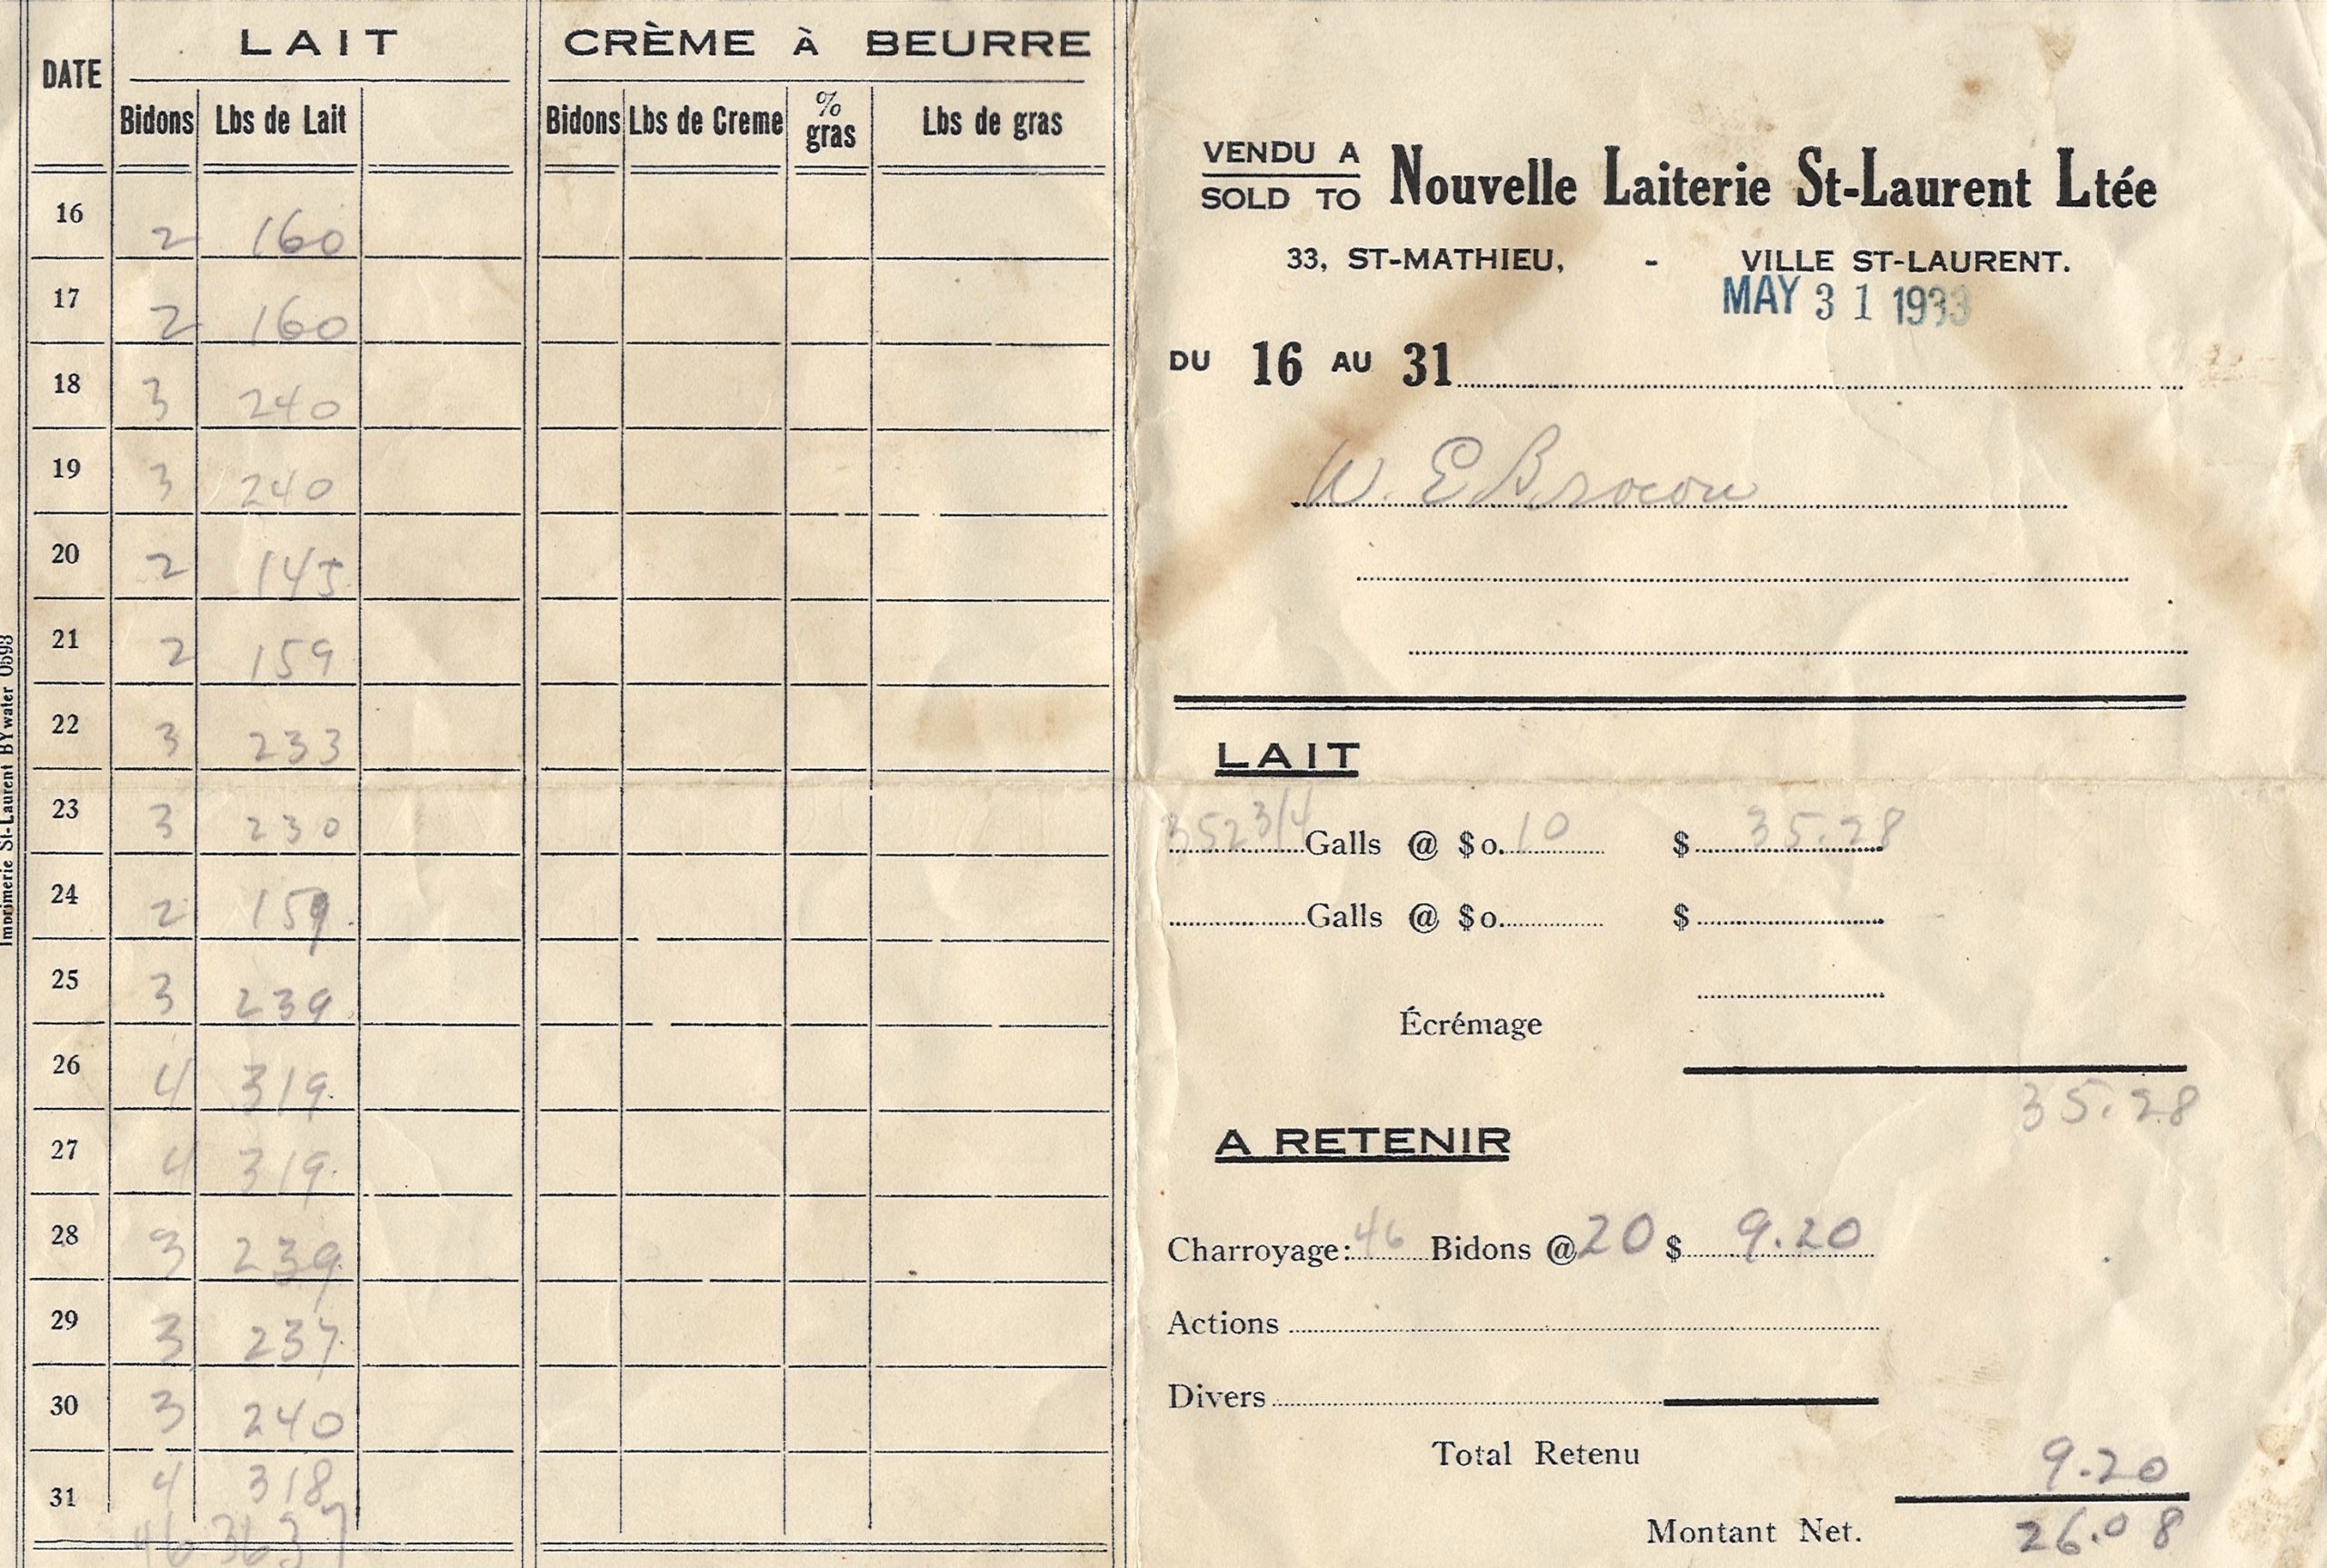 DATE
LAIT
CRÈME À BEURRE
Bidons Lbs de Lait
Bidons Lbs de Creme % gras Lbs de gras
16 2 160
17 2 160
18 3 240
19 3 240
20 2 145
21 2 159
22 3 233
23 3 230
24 2 159
25 3 239
26 4 319
27 4 319
28 3 239
29 3 237
30 3 240
31 4 318
46 3637
Imprimerie St-Laurent BYwater 0598
VENDU A
SOLD TO
Nouvelle Laiterie St-Laurent Ltée
33, ST-MATHIEU, - VILLE ST-LAURENT.
MAY 31 1933
DU 16 AU 31
W. E Brown
LAIT
352 3/4 Galls @ $0.10 $ 35.28
Galls @ $0. $
Écrémage
35.28
A RETENIR
Charroyage: 46 Bidons @ 20 $ 9.20
Actions
Divers
Total Retenu 9.20
Montant Net. 26.08